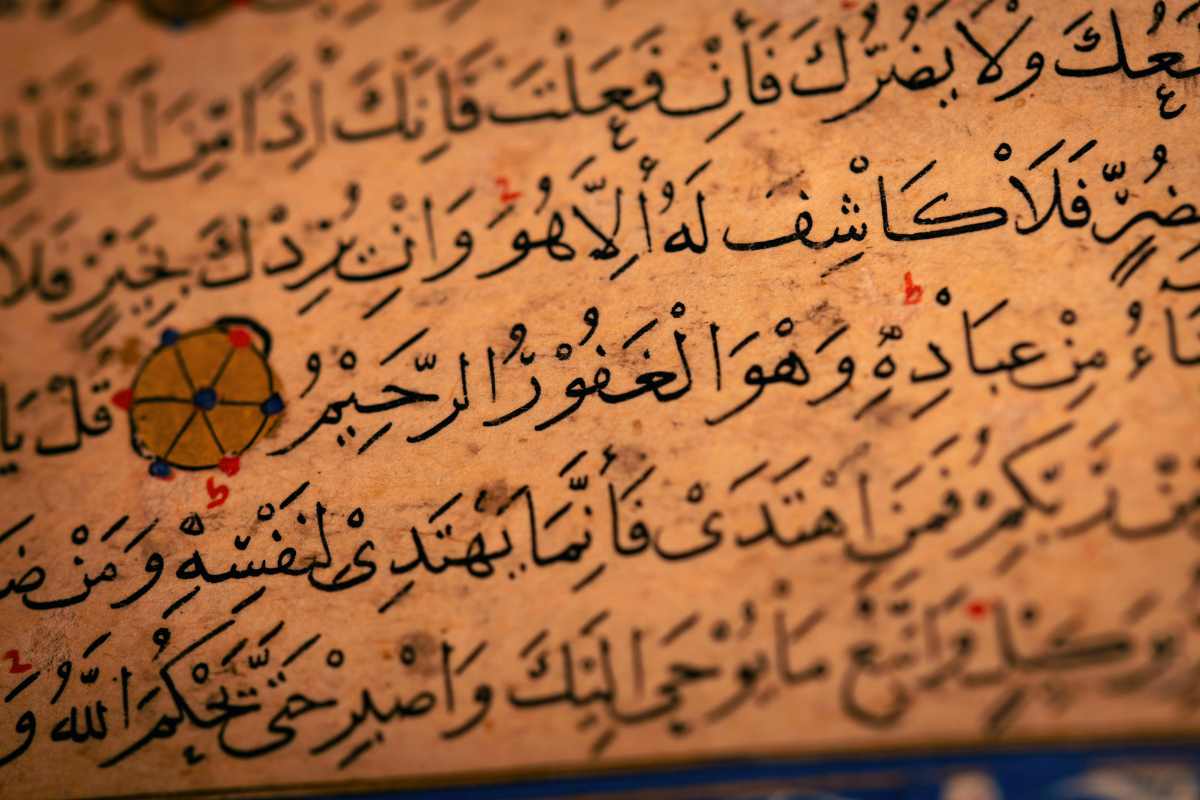 ـعُكَ وَلَا يَضُرُّكَ فَاِنْ فَعَلْتَ فَاِنَّكَ اِذًا مِّنَ الظَّالِمِ
بِضُرٍّ فَلَا كَاشِفَ لَهُ اِلَّا هُوَ وَاِنْ يُرِدْكَ بِخَيْرٍ فَلَا
ـَاءُ مِنْ عِبَادِهِ وَهْوَ الْغَفُوْرُ الرَّحِيْمُ قُلْ يَا
مِنْ رَبِّكُمْ فَمَنِ اهْتَدَىْ فَاِنَّمَا يَهْتَدِىْ لِنَفْسِهِ وَمَنْ ضَ
بِوَكِيْلٍ وَاتَّبِعْ مَا يُوْحٰى اِلَيْكَ وَاصْبِرْ حَتّٰى يَحْكُمَ اللّٰهُ وَ